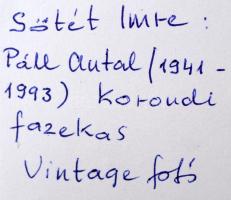 Sötét Imre:
Páll Antal (1941-
1993) korondi
fazekas
Vintage fotó